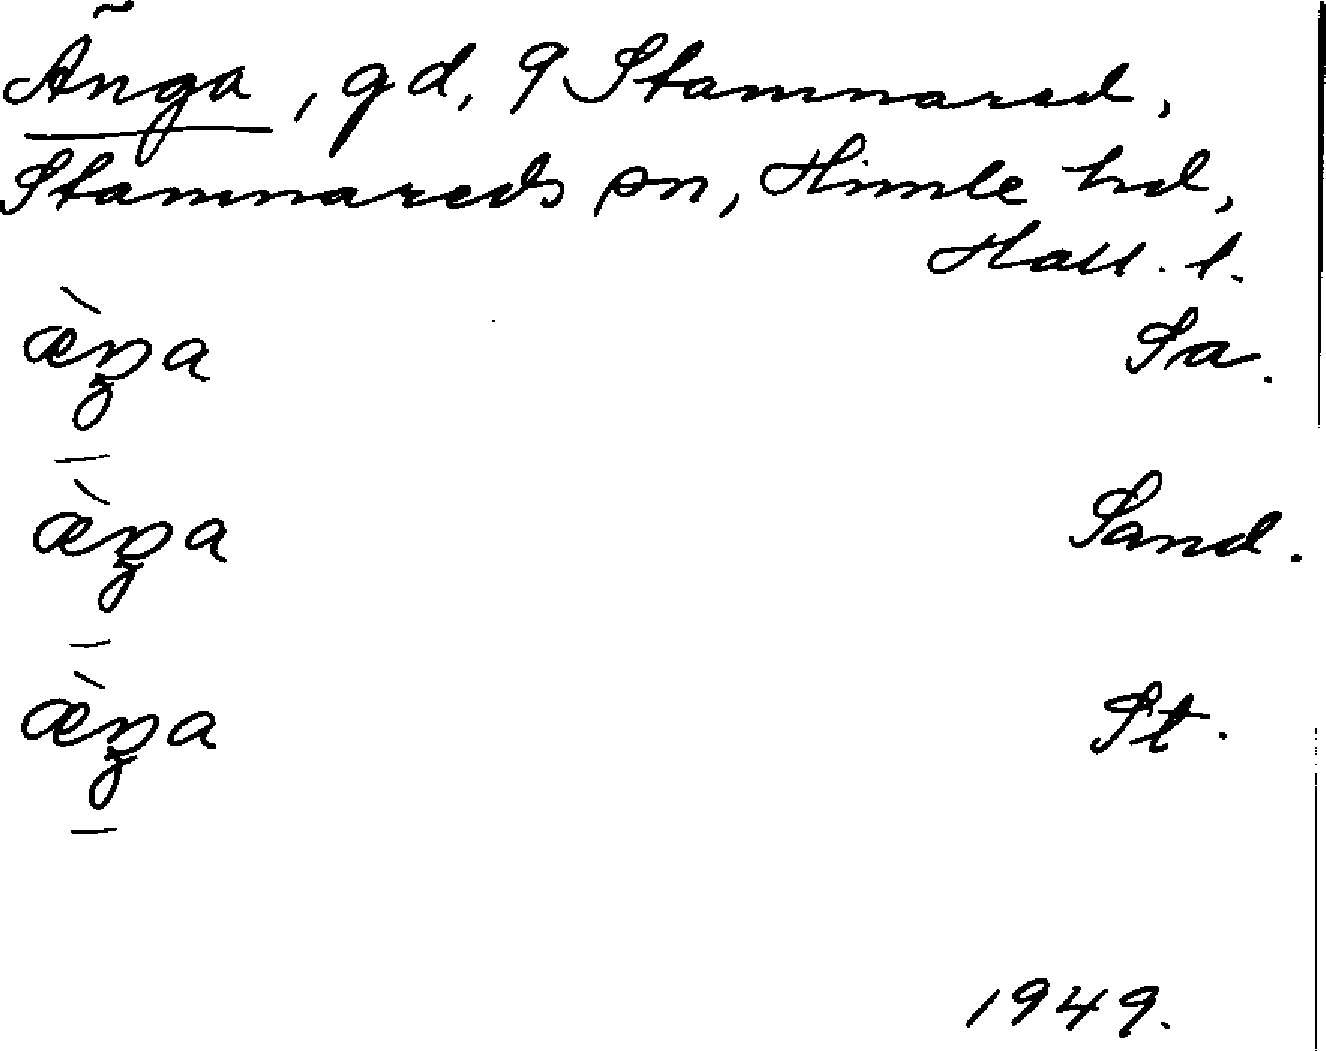 Änga, gd, 9 Stamnared,
Stamnareds sn, Himle hd,
Hall. l.
æ̀ŋa Sa.
æ̀ŋa Sand.
æ̀ŋa St.
1949.